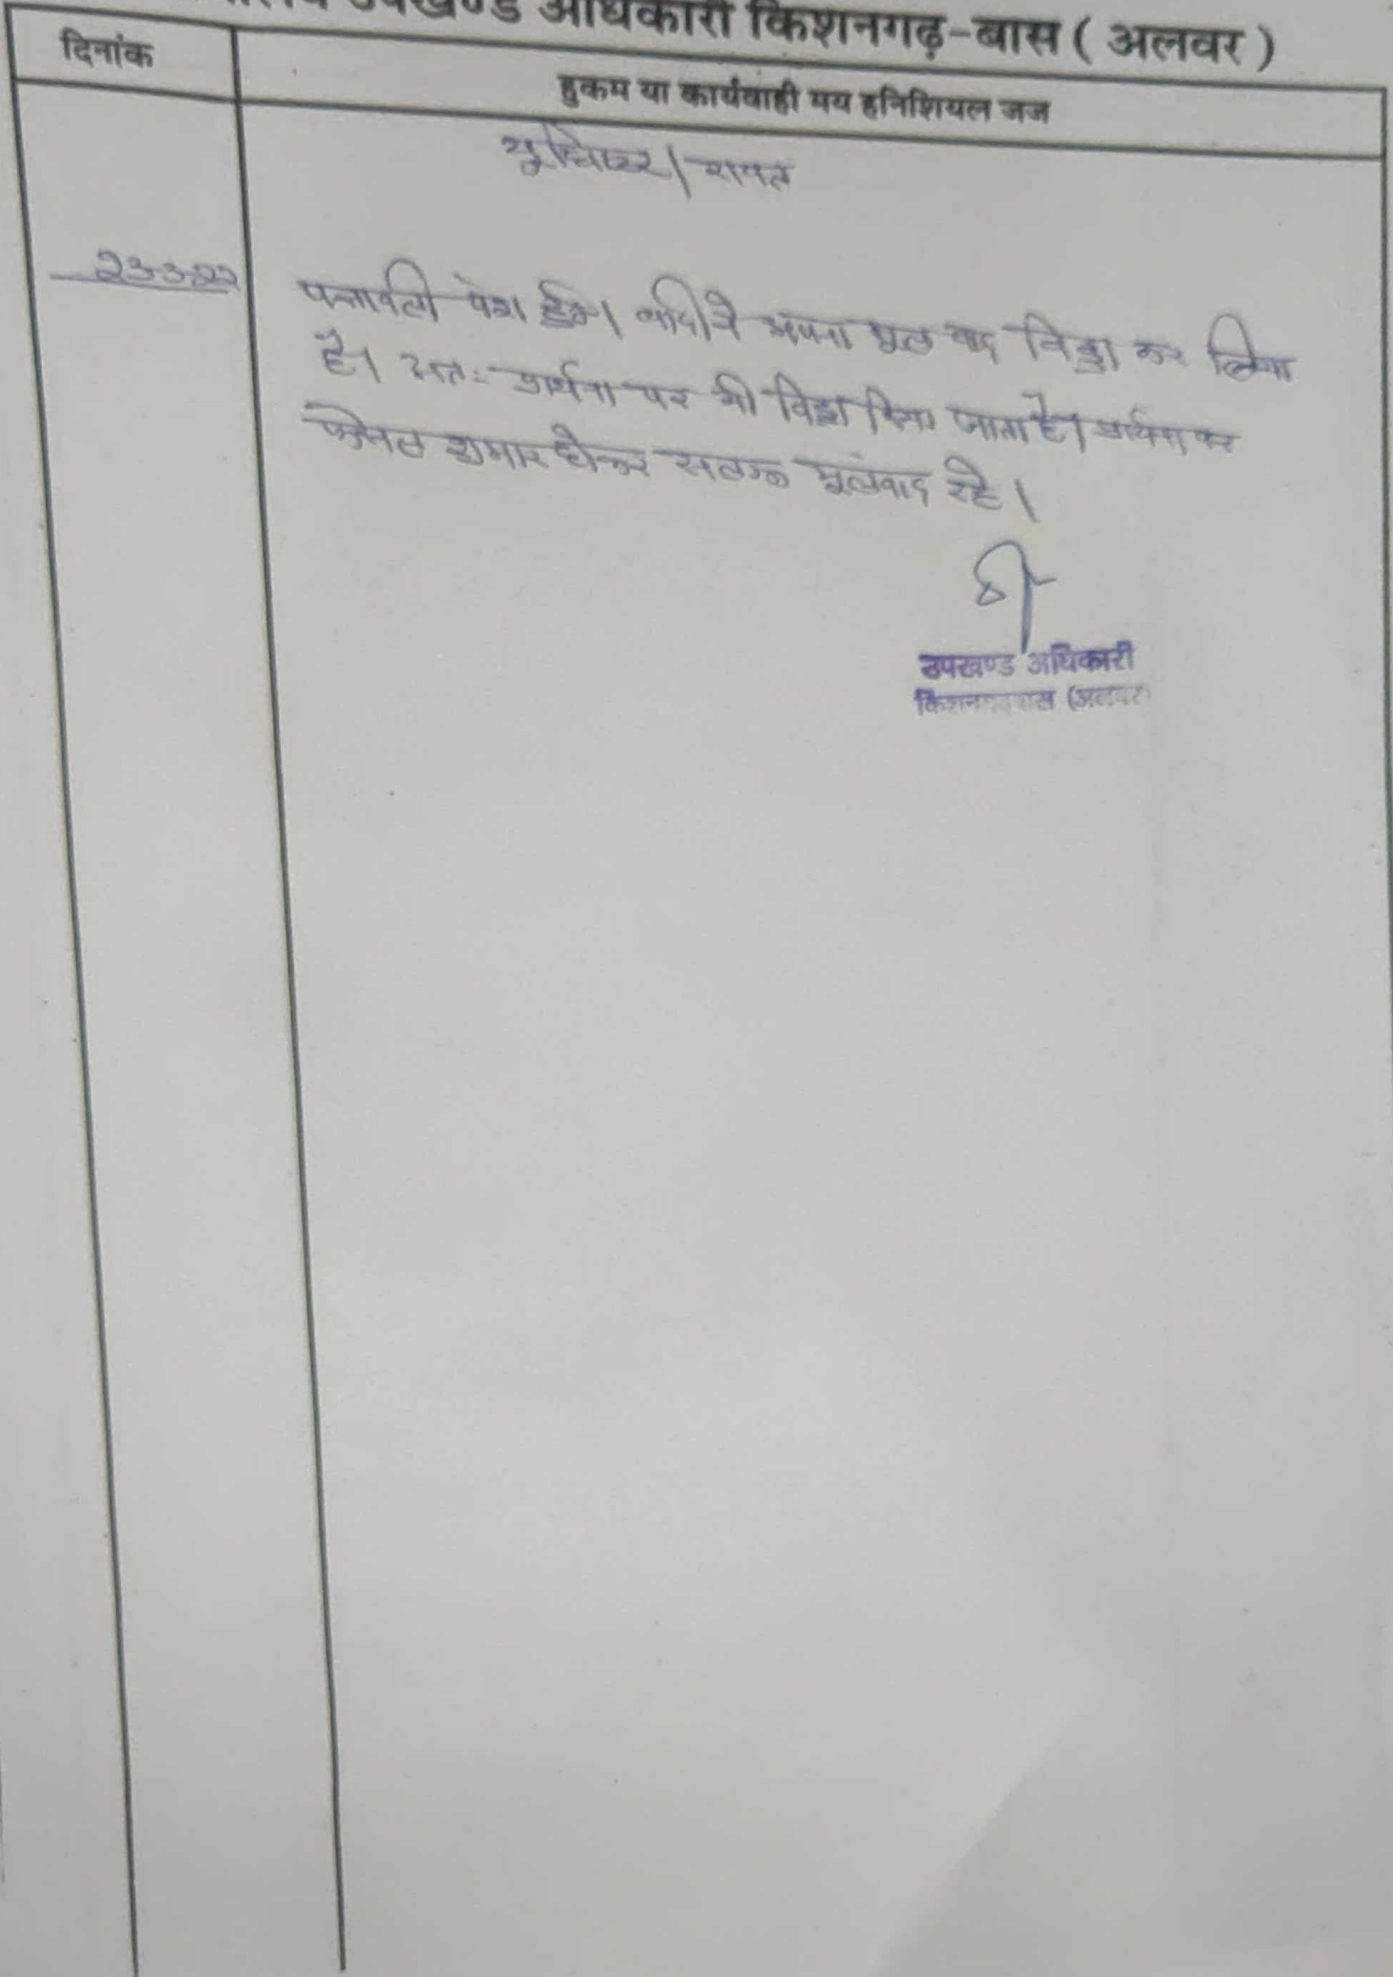 उपखण्ड अधिकारी किशनगढ़-बास ( अलवर )
दिनांक
हुकम या कार्यवाही मय इनिशियल जज
23-3-22
पत्रावली पेश हुई। वादी ने अपना मूल वाद विड्रा कर लिया
है। अतः प्रार्थना पत्र भी विड्रा किया जाता है। प्रार्थना पत्र
फैसल शुमार होकर सलंग्न मूलवाद रहे।
उपखण्ड अधिकारी
किशनगढ़बास (अलवर)